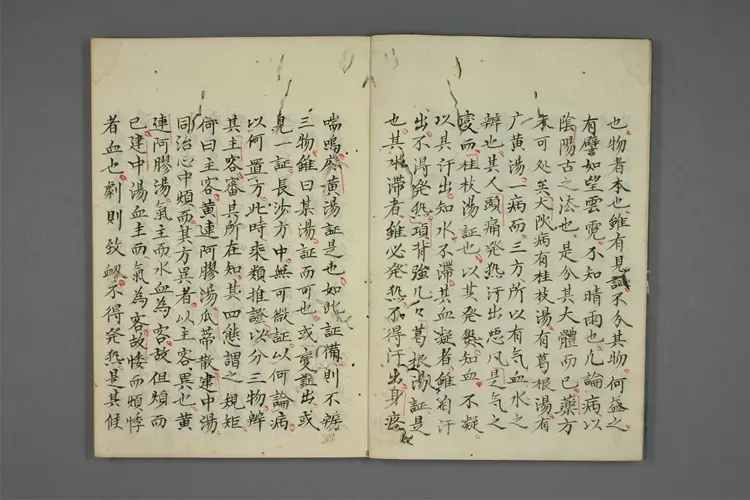 也物者本也雖有見証不分其物何益之
有譬如望雲霓不知晴雨也凡論病以
陰陽古之法也是分其大體而已藥方
未可処矣大陽病有桂枝湯有葛根湯有
广黄湯一病而三方所以有气血水之
辨也其人頭痛発熱汗出悪凡是气之
変而桂枝湯証也以其発熱知血不凝
以其汗出知水不滞其血凝者雖自汗
出不得発熱項背強几几葛根湯証是
也其水滞者雖必発熱不得汗出身疼
喘鳴麻黄湯証是也如此証備則不辨
三物雖曰某湯証而可也或変証出或
見一証長沙方中無可徴証以何論病
以何置方此時乘類推證以分三物辨
其主客審其所在知其四態謂之規矩
何曰主客黄連阿膠湯瓜蒂散建中湯
同治心中煩而其方異者以主客異也黄
連阿膠湯氣主而水血為客故但煩而
已建中湯血主而氣為客故悸而煩悸
者血也劇則致衂不得発熱是其候